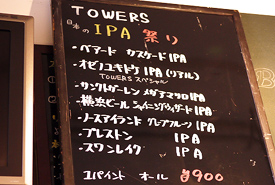 TOWERS
日本の IPA 祭り
・ベアード カスケード IPA (BA
・オゼノユキドケ IPA (リアル)
TOWERS スペシャル
・サンクトガーレン IPA
・横浜ビール IPA
・ノースアイランド グレープフルーツ IPA
・プレストン IPA
・スワンレイク IPA
1パイント オール ¥900